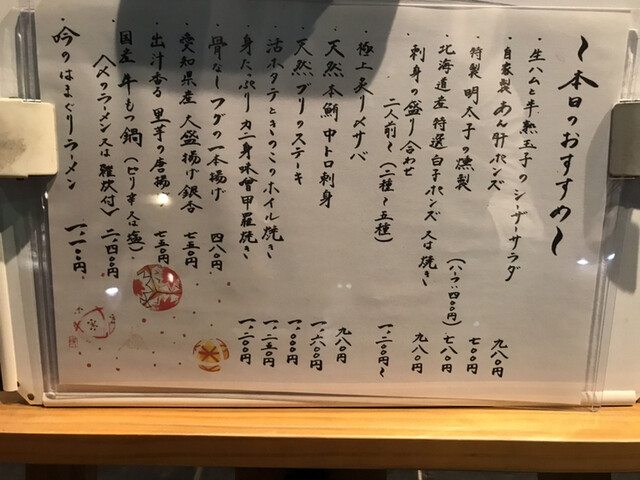 〜本日のおすすめ〜
・生ハムと半熟玉子のシーザーサラダ 九八〇円
・自家製あん肝ポンズ 七〇〇円
・特製明太子の燻製 七八〇円
・北海道産 特選白子ポンズ又は焼き (ハーフ四〇〇円) 九八〇円
・刺身の盛り合わせ
二人前〜(二種〜五種) 一、二〇〇円〜
・極上炙り〆サバ 九八〇円
・天然本鮪中トロ刺身 一、六〇〇円
・天然ブリのステーキ 一、〇〇〇円
・活ホタテときのこのホイル焼き 一、二五〇円
・身たっぷりカニ身味噌甲羅焼き 一、二〇〇円
・骨なしフグの一本揚げ 四八〇円
・愛知県産 大盛揚げ銀杏 七五〇円
・出汁香る里芋の唐揚げ 七五〇円
・国産牛もつ鍋(ピリ辛又は塩)
〈〆のラーメン又は雑炊付〉 二、四〇〇円
・吟のはまぐりラーメン 一、一〇〇円